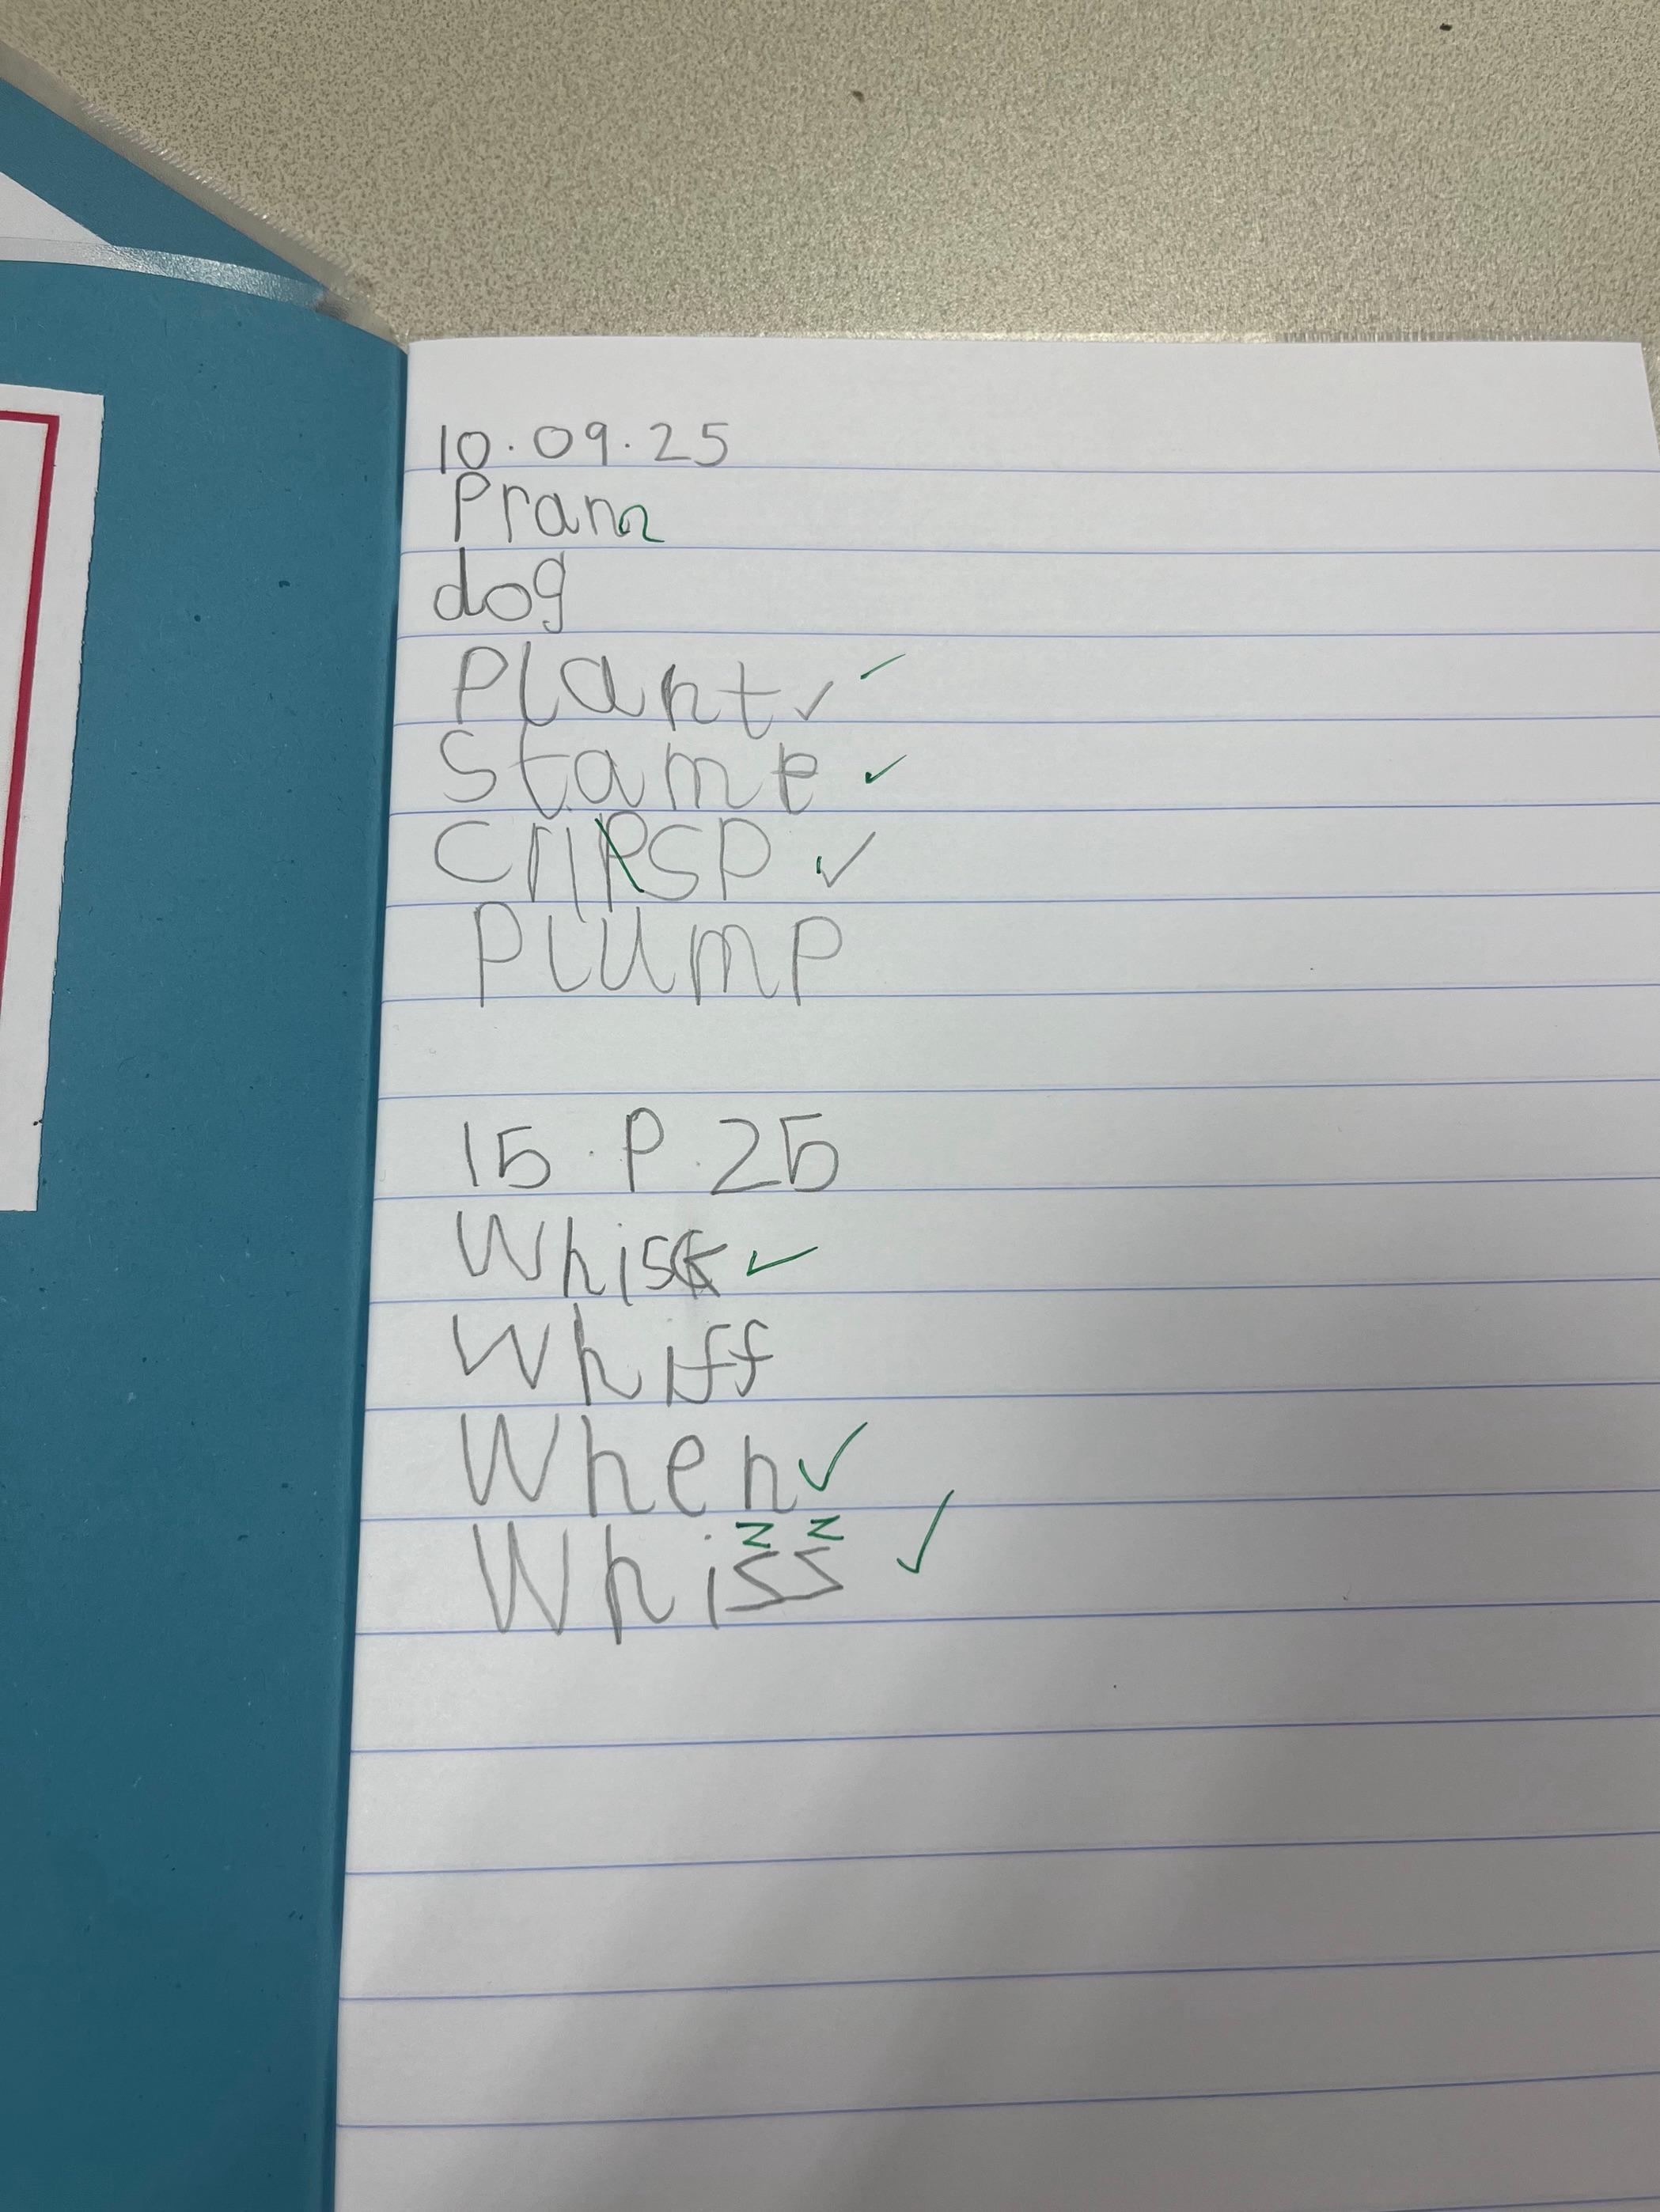 10.09.25
Pram
dog
Plant ✓ ✓
Stamp ✓
Cripsp ✓
Plump
15.P.25
Whisk ✓
Whiff
When ✓
z z
Whiss ✓